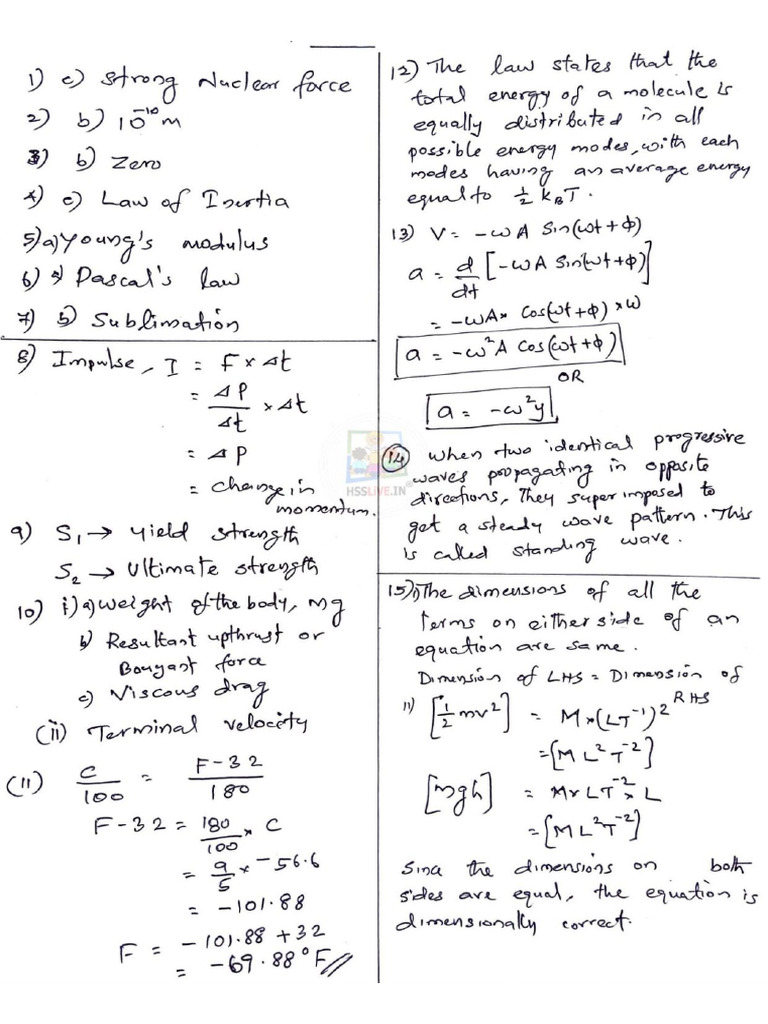 1) c) Strong Nuclear force
2) b) 10⁻¹⁰ m
3) b) Zero
4) c) Law of Inertia
5) a) Young's modulus
6) Pascal's law
7) b) Sublimation
8) Impulse, I = F × Δt
= ΔP/Δt × Δt
= ΔP
= change in
momentum.
9) S₁ → Yield strength
S₂ → Ultimate strength
10) i) a) weight of the body, mg
b) Resultant upthrust or
Bouyant force
c) Viscous drag
(ii) Terminal velocity
(11) C/100 = F-32/180
F-32 = 180/100 × C
= 9/5 × -56.6
= -101.88
F = -101.88 + 32
= -69.88°F //
12) The law states that the
total energy of a molecule is
equally distributed in all
possible energy modes, with each
modes having an average energy
equal to ½ k_B T.
13) V = -ωA Sin(ωt + φ)
a = d/dt [-ωA Sin(ωt + φ)]
= -ωA × Cos(ωt + φ) × ω
a = -ω²A Cos(ωt + φ)
OR
a = -ω²y
14) When two identical progressive
waves propagating in opposite
directions, They super imposed to
get a steady wave pattern. This
is called standing wave.
HSSLIVE.IN®
15) i) The dimensions of all the
terms on either side of an
equation are same.
Dimension of LHS = Dimension of
RHS
ii) [½mv²] = M × (LT⁻¹)²
= [ML²T⁻²]
[mgh] = M × LT⁻² × L
= [ML²T⁻²]
Since the dimensions on both
sides are equal, the equation is
dimensionally correct.